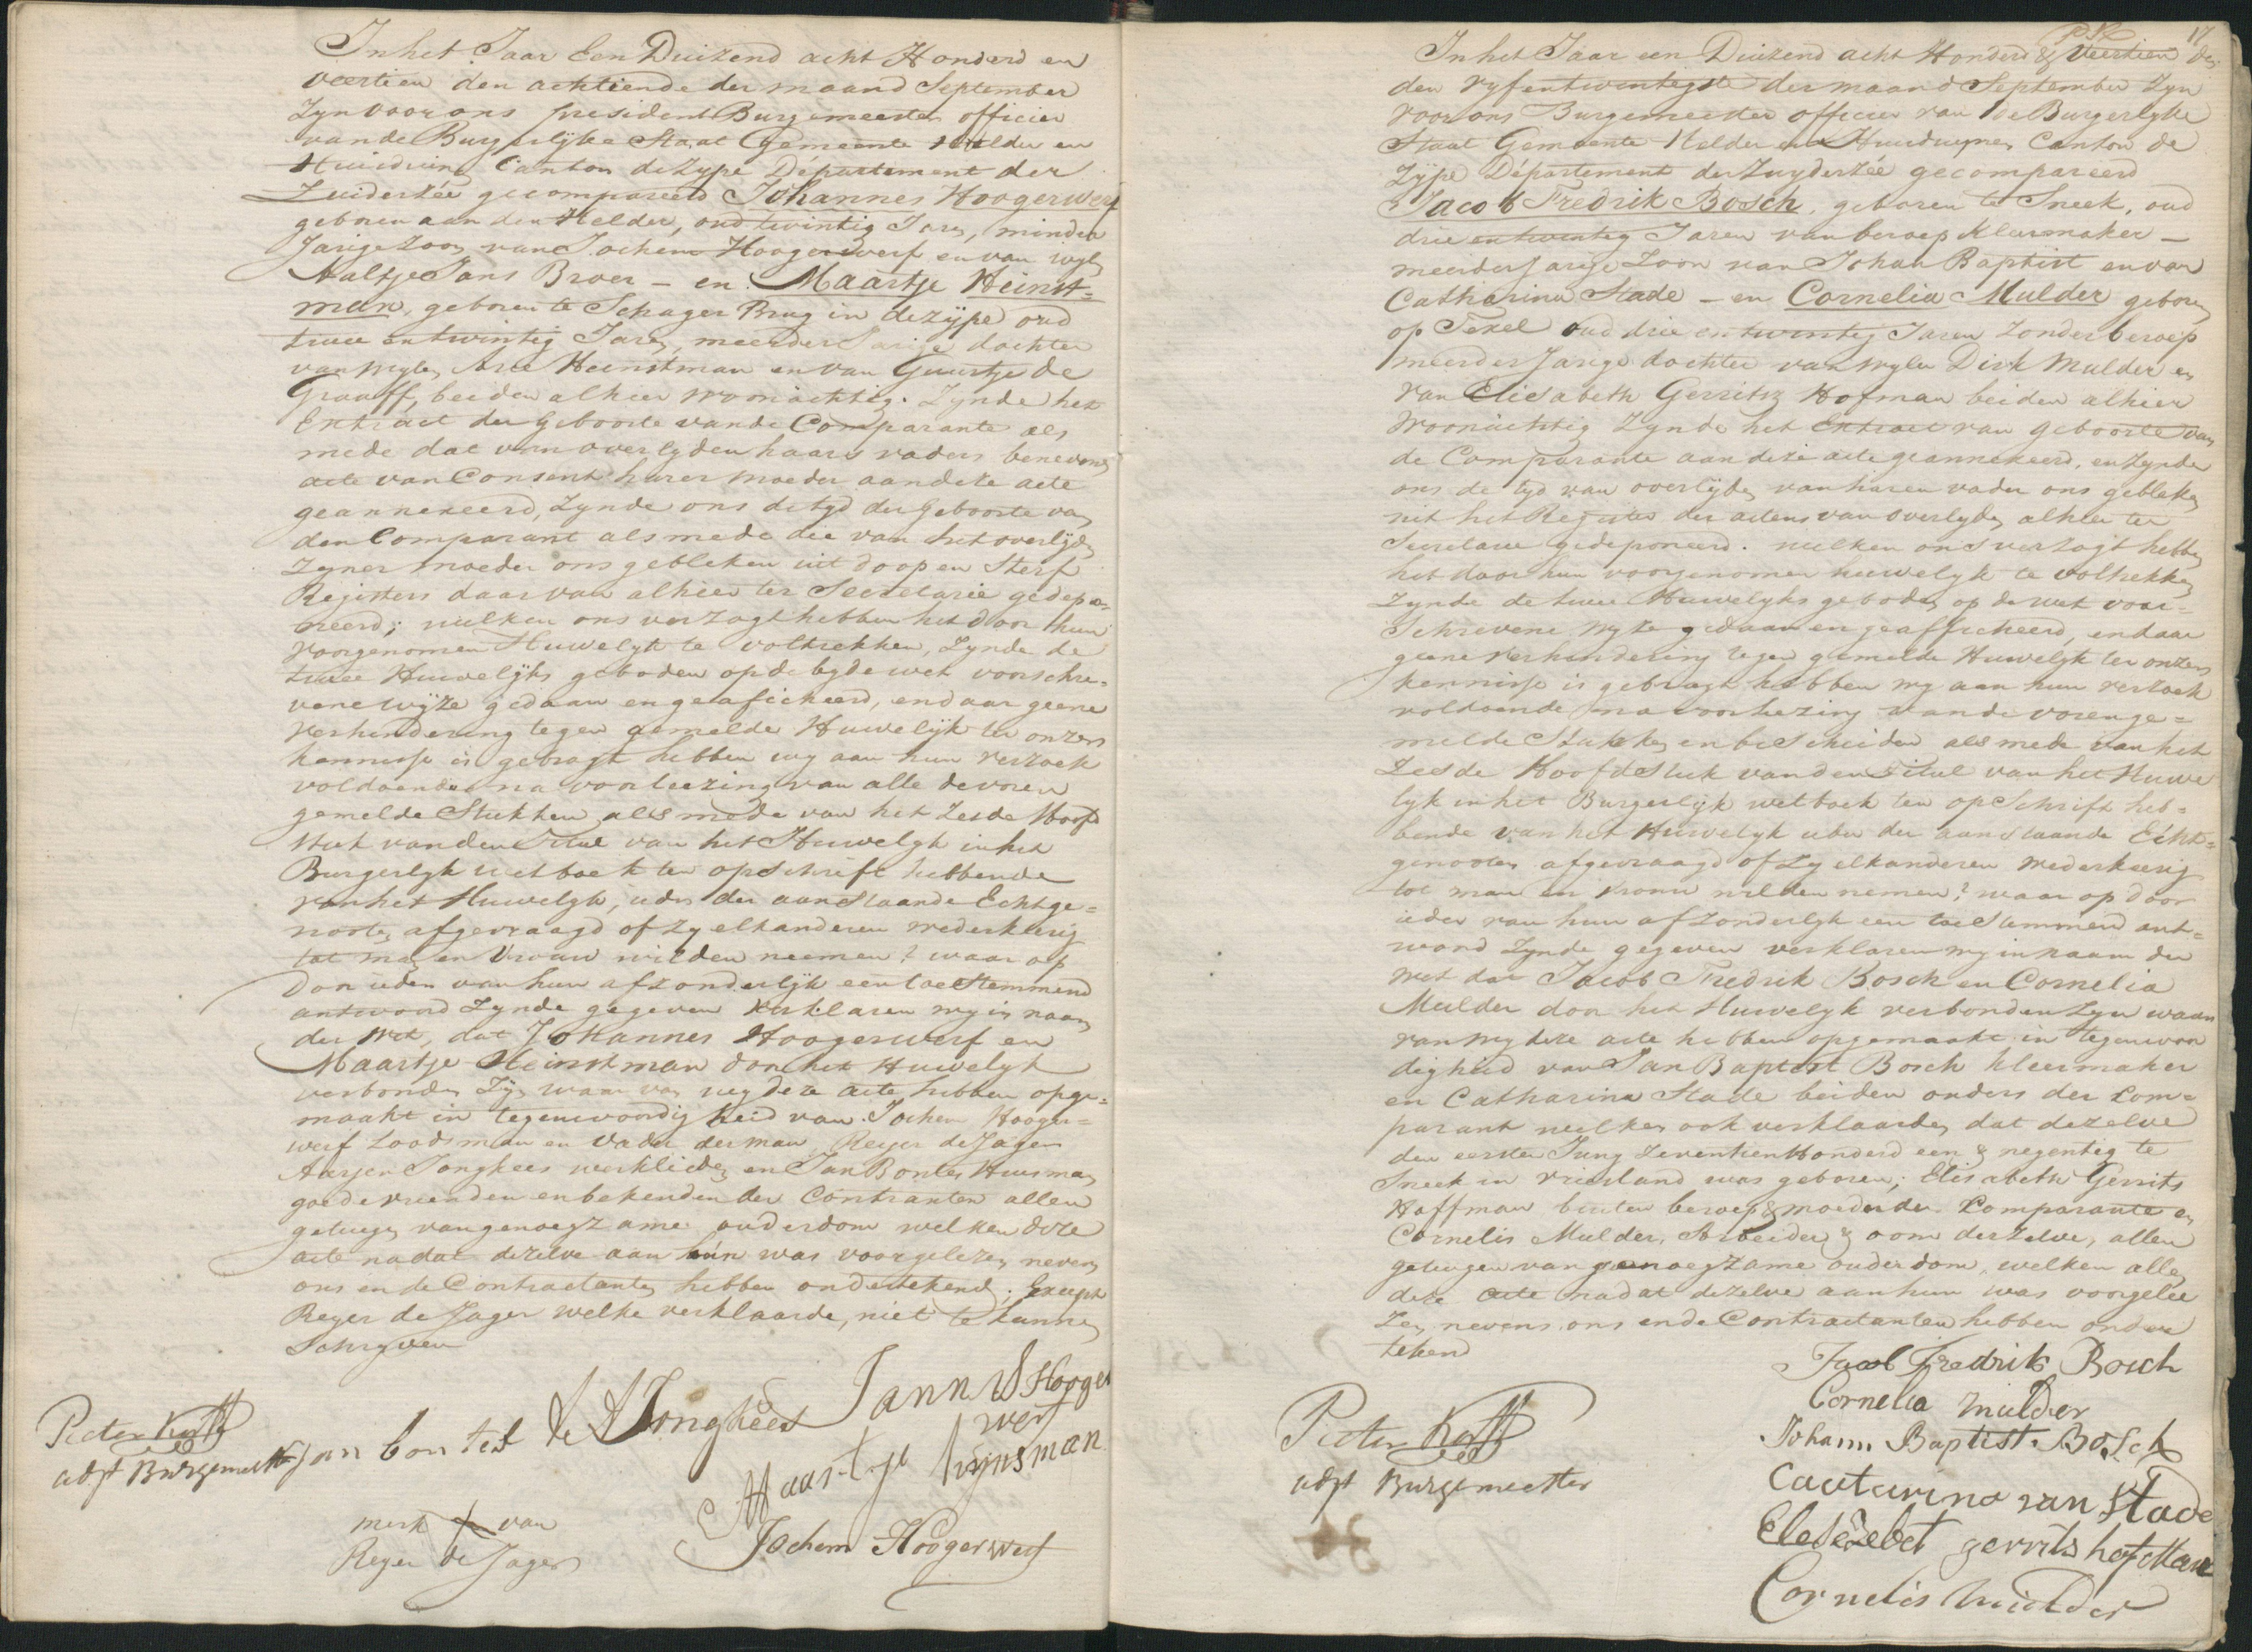 In het Jaar Een Duizend acht Honderd en
veertien den achtiende der maand September
Zyn voor ons president Burgemeester officier
van de Burgerlijke Staat Gemeente Helder en
Huisduine Canton de Zype Département der
Zuiderzée gecompareerd Johannes Hoogerwerf
geboren aan den Helder, oud twintig Jare, minder
Jarige Zoon van Jochem Hoogerwerf en van wyle
Aaltje Jans Broer - en Maartje Heinst=
man, geboren te Schager Brug in de Zijpe oud
twee en twintig Jare, meerder Jarige dochter
van wyle Arie Heinstman en van Guurtje de
Graaff, beiden alhier woonachtig. Zynde het
Extract der Geboorte van de Comparante als
mede dat van overlyden haars vaders benevens
acte van Consent harer moeder aan deze acte
geannexeerd, Zynde ons de tyd der Geboorte van
den Comparant als mede die van het overlijde
Zyner moeder ons gebleken uit doop en Sterf
Registers daar van alhier ter Secretarie gedepo=
neerd; welken ons verzogt hebben het door hun
voorgenomen Huwelyk te voltrekken, Zynde de
twee Huwelijks geboden op de by de wet voorschre=
vene wijze gedaan en geafficheerd, en daar geene
verhindering tegen gemelde Huwelijk ter onzer
kennisse is gebragt hebben wy aan hun verzoek
voldoende na voorleezing van alle de voren
gemelde Stukken als mede van het Zesde Hoofd
Stuk van den Titul van het Huwelyk in het
Burgerlyk wetboek ten opschrift hebbende
van het Huwelyk, ider der aanstaande Echtge=
noote afgevraagd of Zy elkanderen wederkeerig
tot man en Vrouw wilden neemen? waar op
Door ieder van hun afzonderlijk een toestemmend
antwoord Zynde gegeven verklaren wy in naam
der wet, dat Johannes Hoogerwerf en
Maartje Heinstman door het Huwelyk
verbonden Zijn waar van wy deze acte hebben opge=
maakt in tegenwoordigheid van Jochem Hooger=
werf Loodsman en vader der man, Reyer de Jager
Arjen Jongkees werklieden en Jan Bontes Huisman
goede vrienden en bekenden der Contranten allen
getuige van genoegzame ouderdom welken deze
acte nadat dezelve aan hún was voorgelezen nevens
ons en de Contractanten hebben ondertekend; Except
Reyer de Jager welke verklaarde, niet te kunnen
Schryven
Pieter Kof
adjt Burgemeester
Jan bontes
A Jongkees
Jann S Hooger
werf
Maartje hijnsman
Jochem Hoogerwerf
merk van
Reyer de Jager
17
In het Jaar een Duizend acht Honderd & veertien
den vyf en twintigste der maand September Zyn
voor ons Burgemeester officier van de Burgerlyke
Staat Gemeente Helder en Huisduynen Canton de
Zÿpe Département der Zuyderzée gecompareerd
Jacob Fredrik Bosch, geboren te Sneek, oud
drie en twintig Jaren van beroep Kleermaker -
meerder Jarige Zoon van Johan Baptist en van
Catharina Stade - en Cornelia Mulder geboren
op Texel oud drie en twintig Jaren Zonder beroep
meerder Jarige dochter van wylen Dirk Mulder en
van Elisabeth Gerritsz Hofman beiden alhier
woonachtig Zynde het Extract van geboorte van
de Comparante aan deze acte geannexeerd, en Zynde
ons de tyd van overlijden van haren vader ons gebleken
uit het Register der actens van overlyden alhier ter
Secretarie gedeponeerd. welken ons verzogt hebben
het door hun voorgenomen huwelyk te voltrekken
Zynde de twee Huwelyks geboden op de wet voor=
Schrevene wyze gedaan en geafficheerd, en daar
geene verhindering tegen gemelde Huwelyk ter onzer
kennisse is gebragt hebben wy aan hun verzoek
voldoende na voorlezing van de vorenge=
melde Stukken en bescheiden als mede van het
Zesde Hoofdstuk van den Titul van het Huwe
lyk in het Burgerlijk wetboek ten opschrift heb=
bende van het Huwelyk ider der aanstaande Echt=
genooten afgevraagd of Zy elkanderen wederkeerig
tot man en vrouw wilden nemen? waar op door
ieder van hun afzonderlyk een toestemmend ant=
woord Zynde gegeven verklaren wy in naam der
wet dat Jacob Fredrik Bosch en Cornelia
Mulder door het Huwelyk verbonden Zyn waar
van wy deze acte hebben opgemaakt in tegenwoor
digheid van Jan Baptist Bosch kleermaker
en Catharina Stade beiden ouders der Com=
parant welken ook verklaarden dat dezelve
den eersten Juny Zeventien Honderd een & negentig te
Sneek in Vriesland was geboren; Elisabeth Gerrits
Hoffman buiten beroep & moeder der Comparante en
Cornelis Mulder, Arbeider & oom derzelve, allen
getuigen van genoegzame ouderdom, welken alle
deze acte nadat dezelve aan hun was voorgelee
Zen nevens ons en de Contractanten hebben onder
tekend
Jacob Fredrik Bosch
Cornelia mulder
Johann Baptist Bosch
Caatarina van Stade
Elesezebet gerrits hofman
Cornelis Mulder
Pieter Kof
adjt Burgemeester